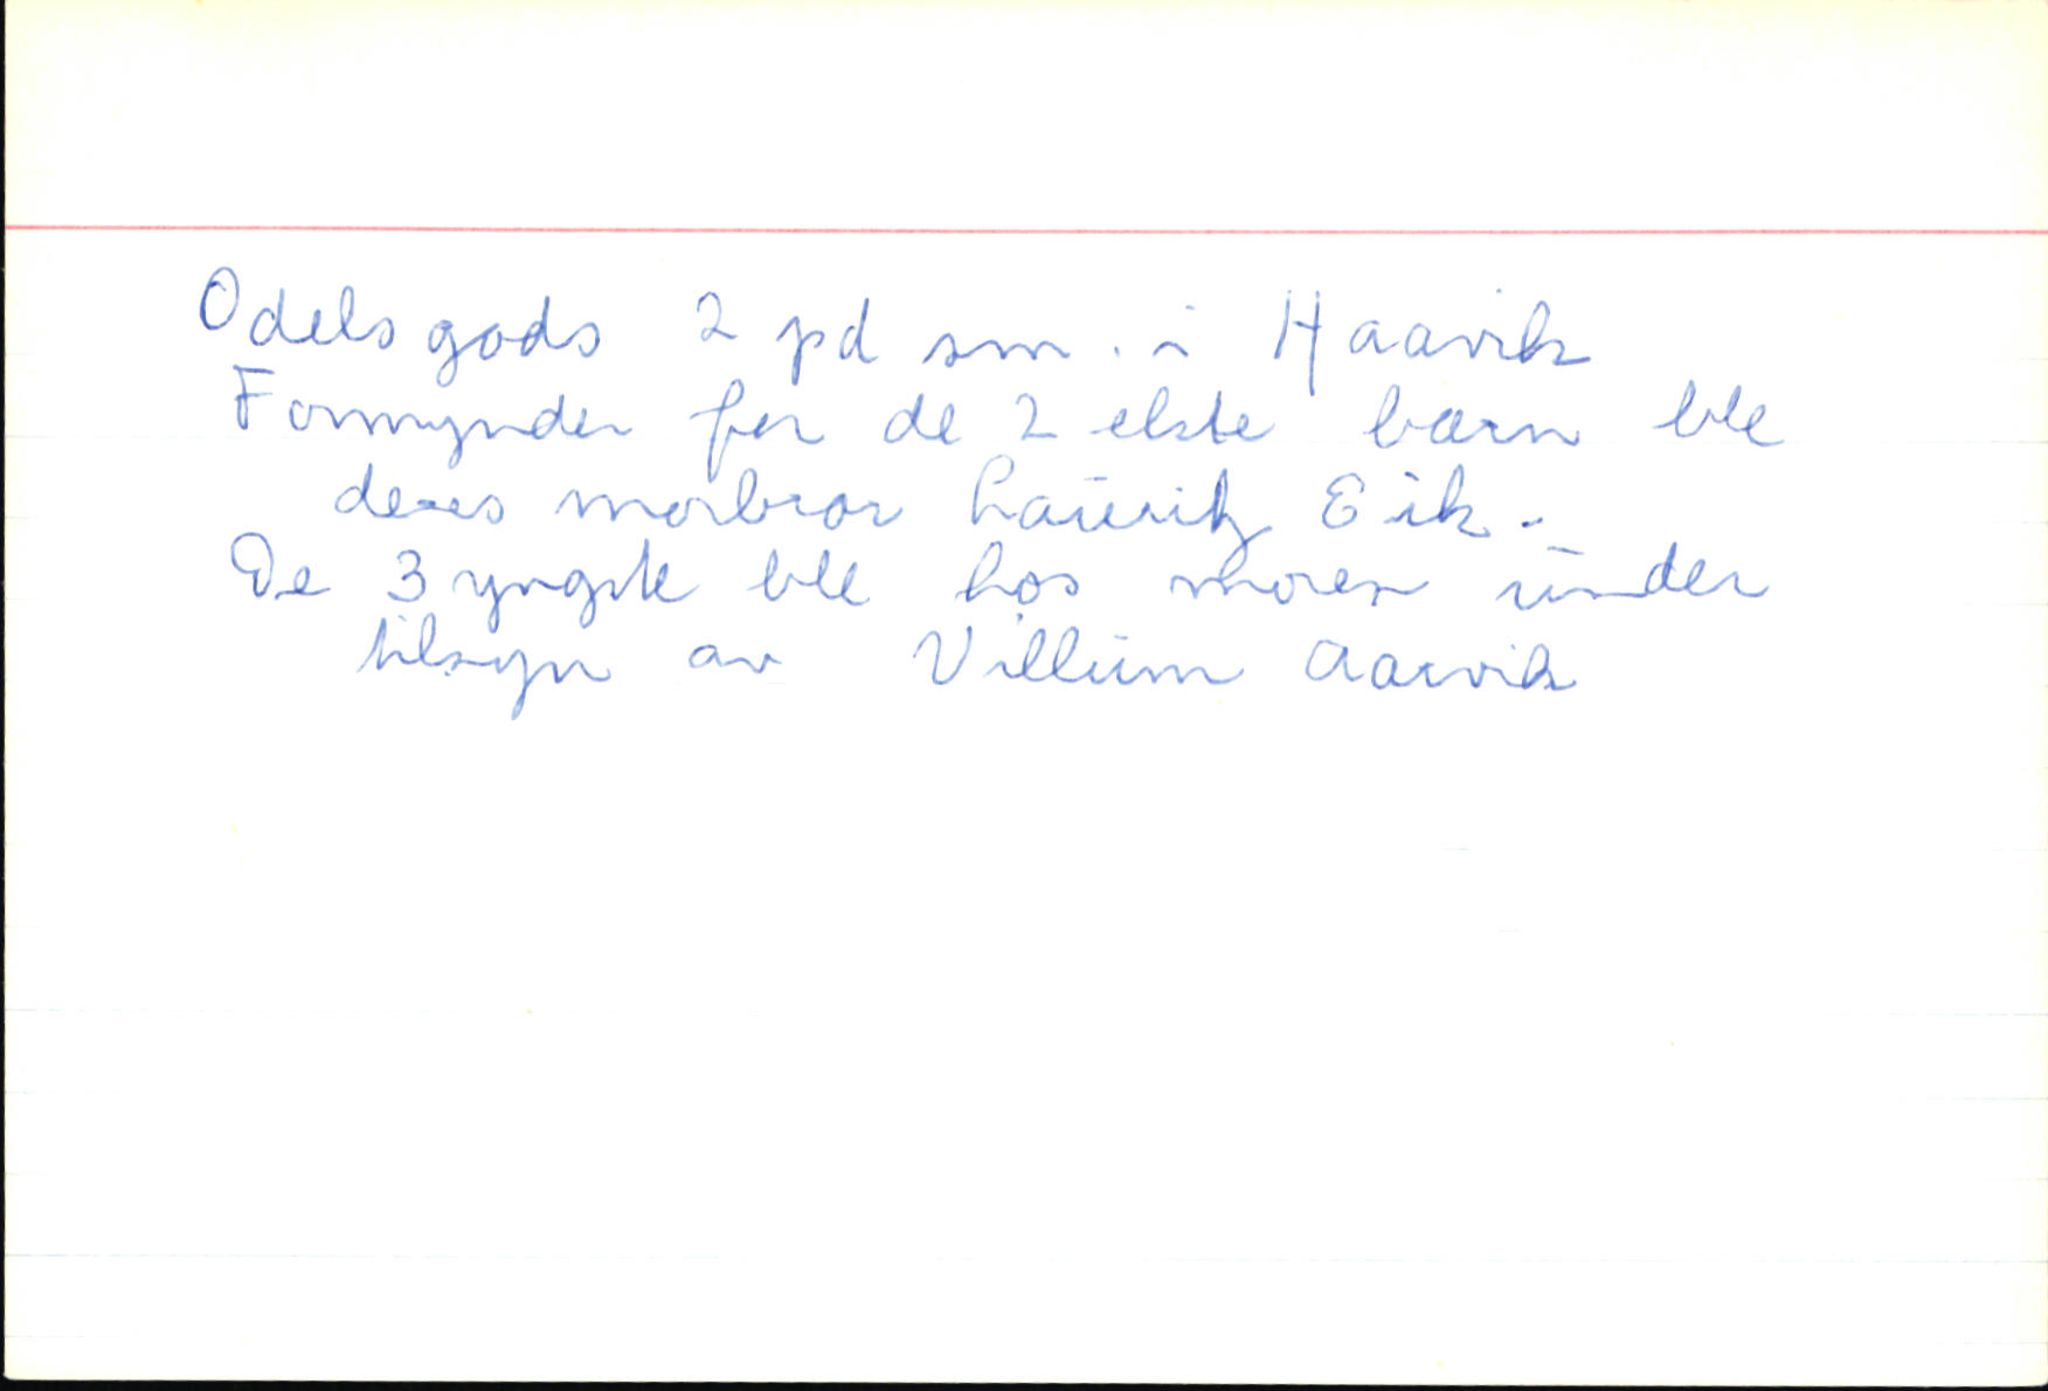 Odelsgods 2 pd sm. i Haavik
Formynder for de 2 elste bærn ble
deres morbror Lauritz Eik.
De 3 yngste ble hos moren under
tilsyn av Villum Aarvik